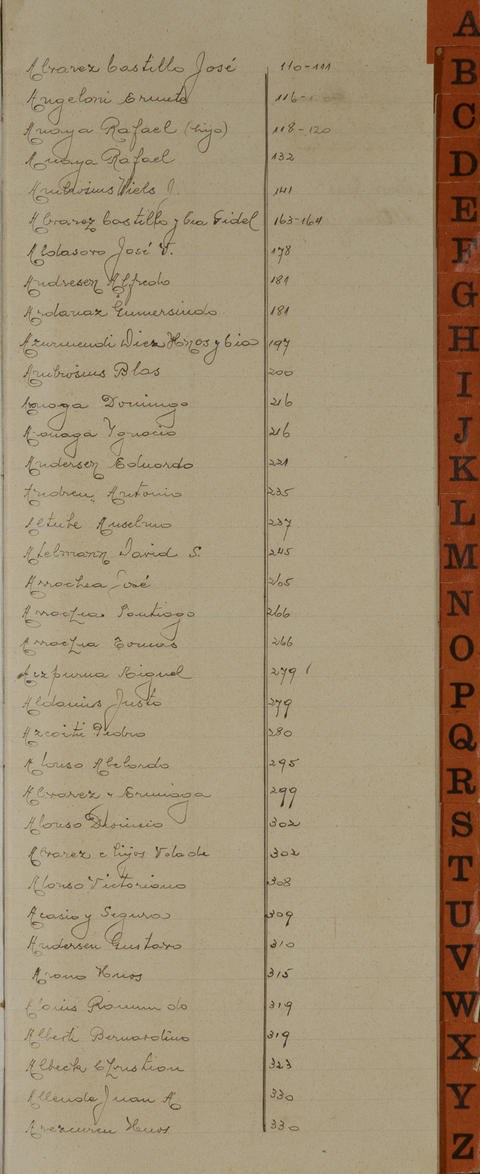 Alvarez Castillo José 110-111
Angeloni Ernesto 116-
Anaya Rafael (hijo) 118-120
Anaya Rafael 132
Ambrosius Niels J. 141
Alvarez Castillo y Cia Fidel 163-164
Aldasoro José V. 178
Andresen Alfredo 181
Ardanaz Gumersindo 181
Azurmendi Diez Hnos y Cia 197
Ambrosius Blas 200
Domingo 216
Ygnacio 216
Andersen Eduardo 221
Andreu Antonio 235
Altube Anselmo 237
Adelmann David S. 245
Arrachea José 265
Santiago 266
Tomas 266
Miguel 279
Justo 279
Azcoiti Pedro 280
Alonso Abelardo 295
Alvarez 299
Alonso Dionicio 302
Alvarez e hijos Vda de 302
Alonso Victoriano 308
Acasio y Segura 309
Andersen Gustavo 310
Arano Hnos 315
319
Alberti Bernardino 319
Albeck Cristian 323
Allende Juan A 330
Hnos 330
A
B
C
D
E
F
G
H
I
J
K
L
M
N
O
P
Q
R
S
T
U
V
W
X
Y
Z